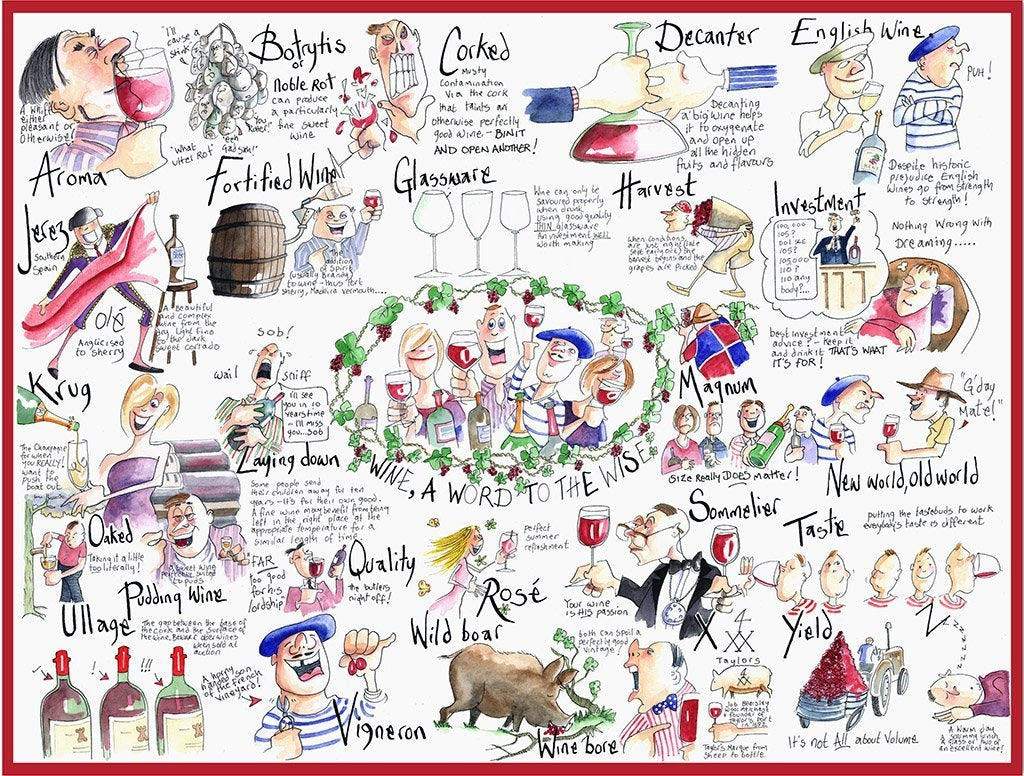 A Whiff
either
pleasant or
otherwise!
Aroma
"I'll
cause a
stink"
Botrytis
or
Noble Rot
can produce
a particularly
fine sweet
wine
"You
Rotter!"
"What
utter Rot"
Gadsah!"
Corked
Musty
Contamination
Via the cork
that taints an
otherwise perfectly
good wine - BIN IT
AND OPEN ANOTHER!
Decanter
Decanting
a big wine helps
it to oxygenate
and open up
all the hidden
fruits and flavours
English Wine
PUH!
Despite historic
prejudice English
Wines go from strength
to strength!
Jerez
Southern
Spain
Olé
Anglicised
to sherry
A Beautiful
and complex
wine from the
dry light fino
to the dark
sweet
Fortified Wine
The
addition
of spirit
(usually Brandy)
to wine - thus Port
sherry, Madeira vermouth....
Glassware
Wine can only be
savoured properly
when drunk
using good quality
THIN glassware
An investment well
worth making
Harvest
when conditions
are just right (late
sept early oct) the
harvest begins and the
grapes are picked
Investment
100,000
105?
Do I see
105?
105,000
110?
110 any
body?...
Nothing Wrong with
Dreaming.....
best investment
advice? - keep it
and drink it THAT'S WHAT
IT'S FOR!
Krug
The Champagne
for when
you REALLY!
want to
push the
boat out
Sob!
wail
sniff
I'll see
you in 10
years time
- I'll miss
you...sob
Laying down
Some people send
their children away for ten
years - it's for their own good.
A fine wine may benefit from being
left in the right place at the
appropriate temperature for a
similar length of time.
WINE, A WORD TO THE WISE
Magnum
Size Really DOES matter!
"G'day
Mate!"
New world, old world
Oaked
Taking it a little
too literally!
A sweet wine
perfectly suited
to puds
Pudding Wine
"FAR
too good
for his
lordship"
Quality
the butlers
night off!
perfect
summer
refreshment
Rosé
Sommelier
Your wine
is HIS passion
Taste
putting the tastebuds to work
everybody's taste is different
Ullage
The gap between the base
of the cork and the surface of
the wine, Beware older wines
when sold at
auction
!
!!!
A horny
handed son
of the French
vineyard!
Vigneron
Wild boar
both can spoil a
perfectly good
vintage!
Wine bore
X
Taylors
Job Bearsley
wool merchant
+ founder of
Taylor's Port
in 1692
Taylors Marque from
sheep to bottle
Yield
It's not All about Volume
Z
zzzzz
A warm day
a glass or two of
an excellent wine!